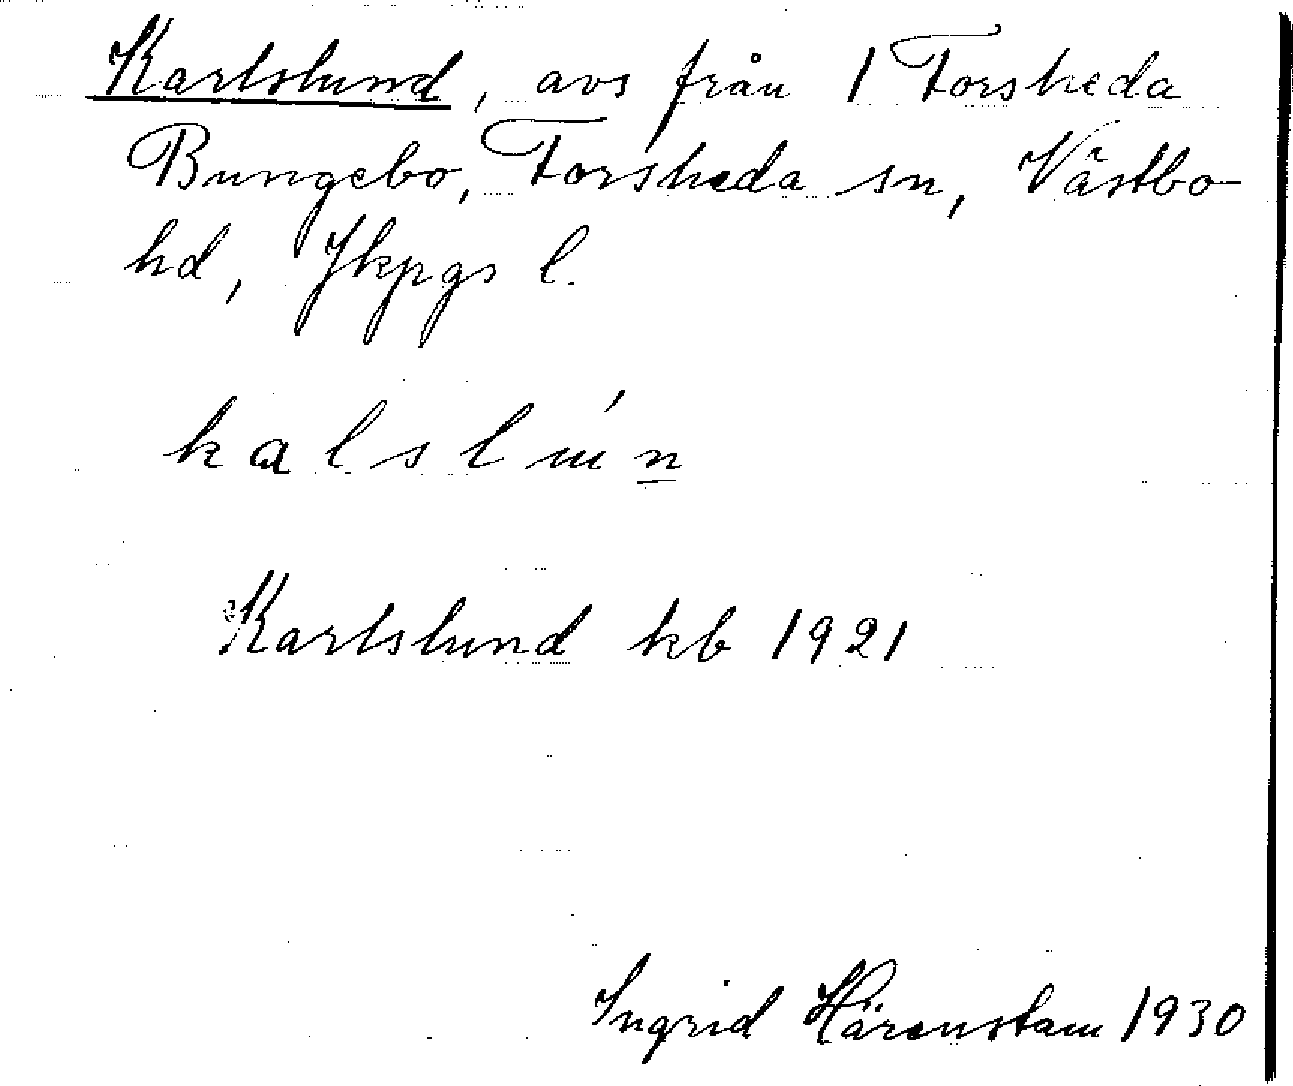 Karlslund, avs från 1 Forsheda
Bungebo, Forsheda sn, Västbo
hd, Jkpgs l.
kalslún
Karlslund kb 1921
Ingrid Härenstam 1930